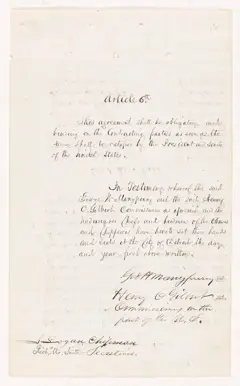 Article 6th
This agreement shall be obligatory and
binding on the Contracting parties as soon as the
same shall be ratified by the President and Senate
of the United States.
In Testimony whereof the said
George W Manypenny and the said Henry
C. Gilbert Commissioners as aforesaid and the
undersigned Chiefs and headmen of the
and Chippewas have hereto set their hands
and seals at the City of Detroit the day
and year first above written
Geo W Manypenny
Henry C Gilbert
Commissioners on the
part of the U.S.